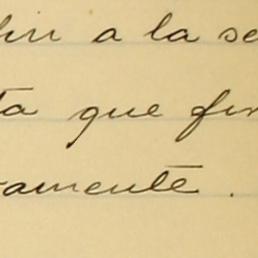 a la se
ta que fir
amente.